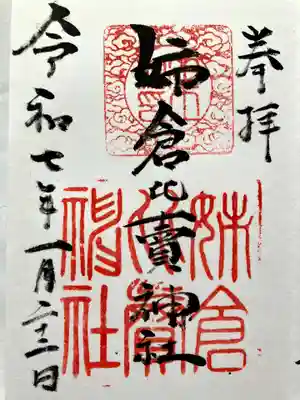 奉拝
姉倉比賣神社
令和七年一月二十二日
姉倉
比賣
神社